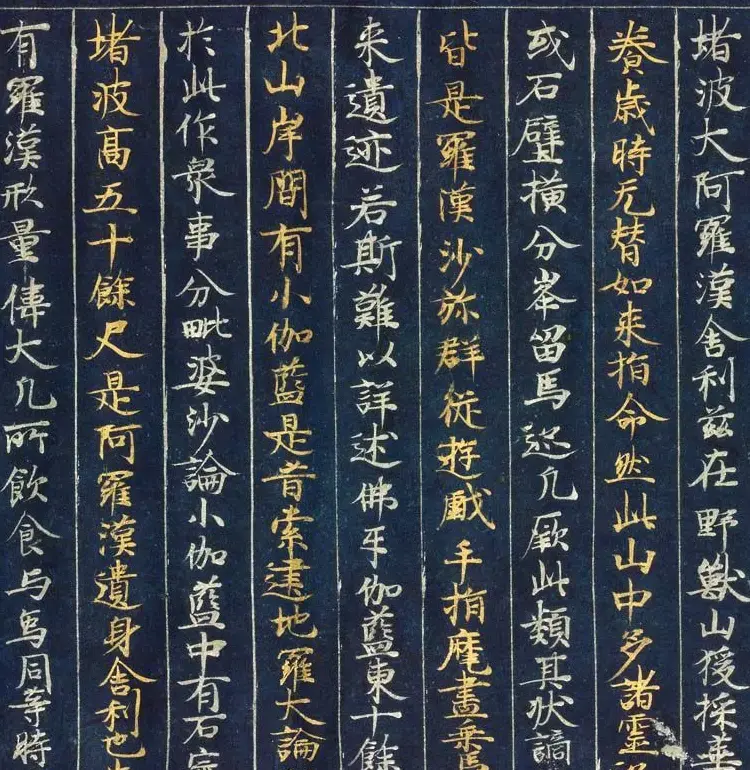 堵波大阿羅漢舍利茲在野獸山猨採
養歳時无替如来指命然此山中多諸靈
或石壁横分峯留馬迹凡厥此類其状謫
皆是羅漢沙弥群従遊戯手指麾畫乗馬
来遺迹若斯難以詳述佛牙伽藍東十餘
北山岸間有小伽藍是昔索建地羅大論
於此作衆事分毗婆沙論小伽藍中有石
堵波高五十餘尺是阿羅漢遺身舍利也
有羅漢形量偉大凡所飲食与鳥同等時